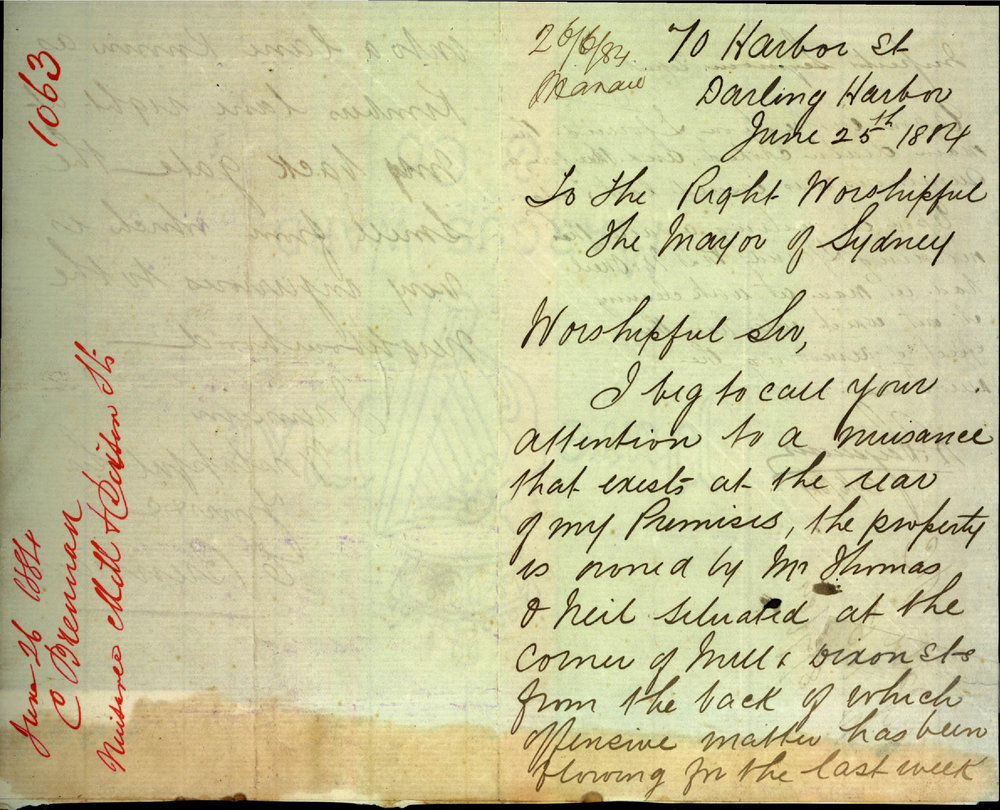 1063
June 26 1884
C Brennan
Nuisance Mill & Dixon Sts
26/6/84
70 Harbor St
Darling Harbor
June 25th 1884
To the Right Worshipful
the Mayor of Sydney
Worshipful Sir,
I beg to call your
attention to a nuisance
that exists at the rear
of my Premises, the property
is owned by Mr Thomas
O Neil situated at the
corner of Mill & Dixon Sts
from the back of which
offensive matter has been
flowing for the last week